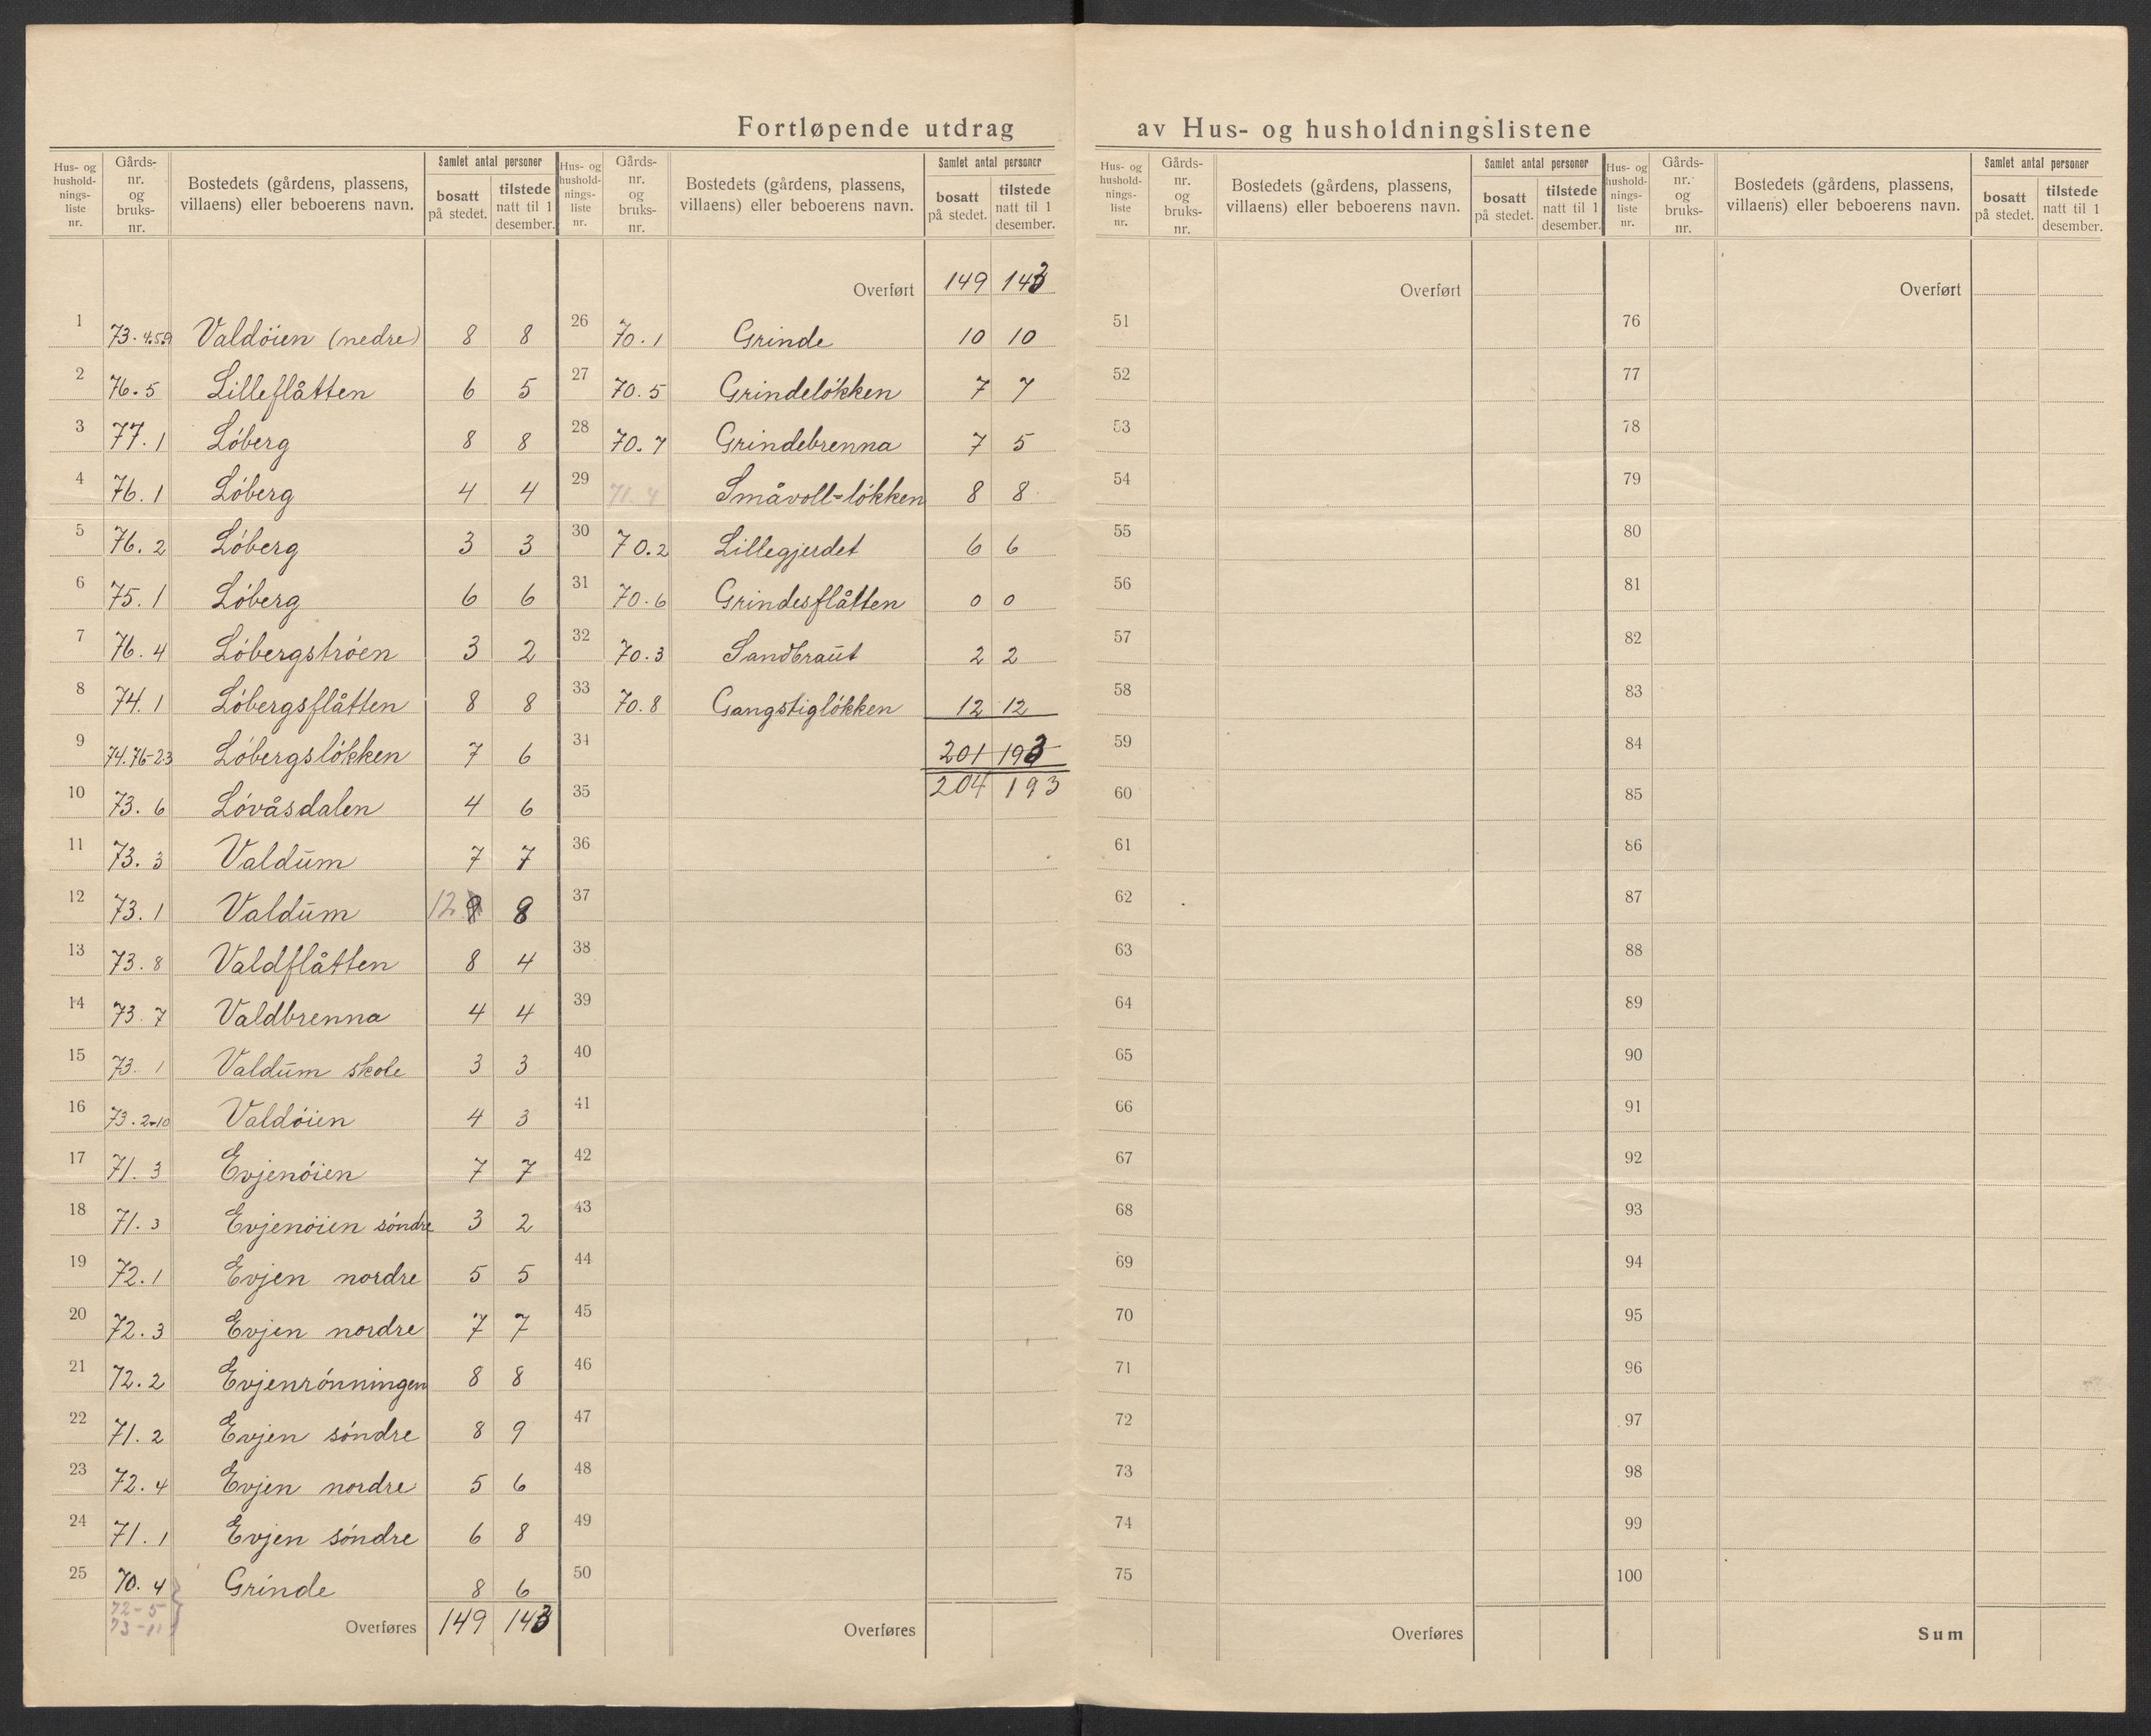 Fortløpende utdrag av Hus- og husholdningslistene
Hus- og husholdnings-liste nr. Gårds-nr. og bruks-nr. Bostedets (gårdens, plassens, villaens) eller beboerens navn. Samlet antal personer bosatt på stedet. tilstede natt til 1 desember.
1 73.4.5.9 Valdöien (nedre) 8 8
2 76.5 Lilleflåtten 6 5
3 77.1 Löberg 8 8
4 76.1 Löberg 4 4
5 76.2 Löberg 3 3
6 75.1 Löberg 6 6
7 76.4 Löbergströen 3 2
8 74.1 Löbergsflåtten 8 8
9 74.76-2.3 Löbergslökken 7 6
10 73.6 Lövåsdalen 4 6
11 73.3 Valdum 7 7
12 73.1 Valdum 12 8 8
13 73.8 Valdflåtten 8 4
14 73.7 Valdbrenna 4 4
15 73.1 Valdum skole 3 3
16 73.2-10 Valdöien 4 3
17 71.3 Evjenöien 7 7
18 71.3 Evjenöien söndre 3 2
19 72.1 Evjen nordre 5 5
20 72.3 Evjen nordre 7 7
21 72.2 Evjenrönningen 8 8
22 71.2 Evjen söndre 8 9
23 72.4 Evjen nordre 5 6
24 71.1 Evjen söndre 6 8
25 70.4 Grinde 8 6
72-5
73-11
Overføres 149 143
Hus- og husholdnings-liste nr. Gårds-nr. og bruks-nr. Bostedets (gårdens, plassens, villaens) eller beboerens navn. Samlet antal personer bosatt på stedet. tilstede natt til 1 desember.
Overført 149 143
26 70.1 Grinde 10 10
27 70.5 Grindelökken 7 7
28 70.7 Grindebrenna 7 5
29 71.4 Småvoll=lökken 8 8
30 70.2 Lillegjerdet 6 6
31 70.6 Grindesflåtten 0 0
32 70.3 Sandbraut 2 2
33 70.8 Gangstiglökken 12 12
34 201 193
35 204 193
36
37
38
39
40
41
42
43
44
45
46
47
48
49
50
Overføres
Hus- og husholdnings-liste nr. Gårds-nr. og bruks-nr. Bostedets (gårdens, plassens, villaens) eller beboerens navn. Samlet antal personer bosatt på stedet. tilstede natt til 1 desember.
Overført
51
52
53
54
55
56
57
58
59
60
61
62
63
64
65
66
67
68
69
70
71
72
73
74
75
Overføres
Hus- og husholdnings-liste nr. Gårds-nr. og bruks-nr. Bostedets (gårdens, plassens, villaens) eller beboerens navn. Samlet antal personer bosatt på stedet. tilstede natt til 1 desember.
Overført
76
77
78
79
80
81
82
83
84
85
86
87
88
89
90
91
92
93
94
95
96
97
98
99
100
Sum